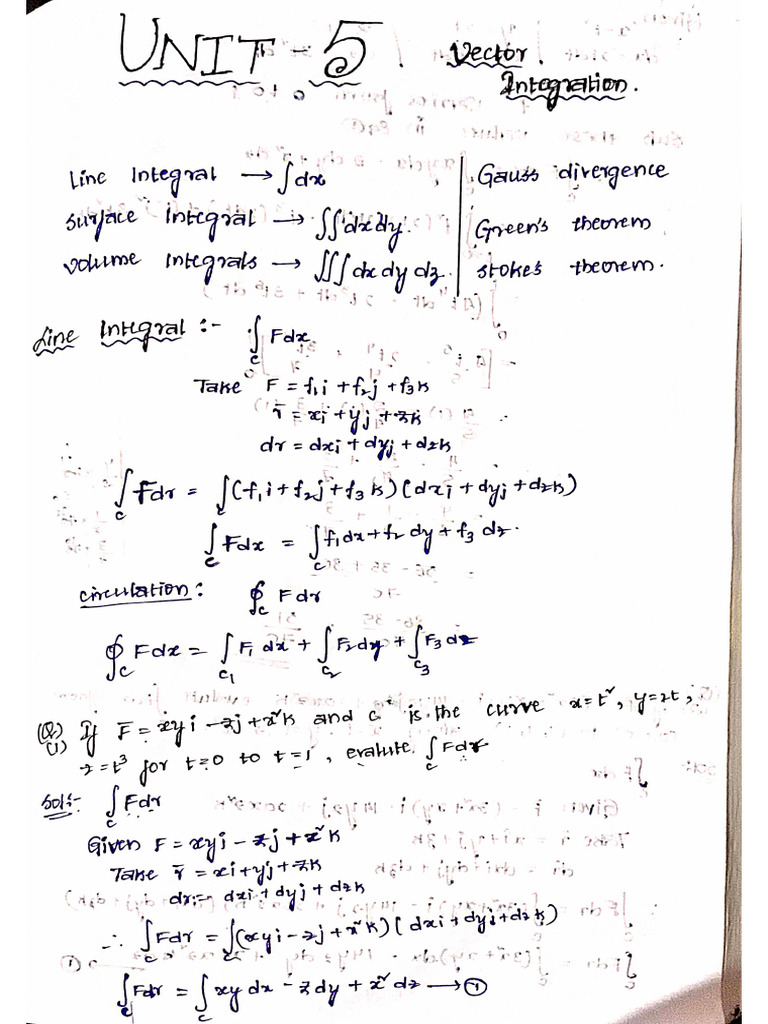 UNIT - 5. Vector
Integration.
Line Integral → ∫dx
surface integral → ∬dxdy.
volume integrals → ∭dx dy dz.
Gauss divergence
Green's theorem
stokes theorem.
Line Integral :- ∫c Fdx
Take F = f₁i + f₂j + f₃k
r̄ = xi + yj + zk
dr = dxi + dyj + dzk
∫c F̄dr = ∫c (f₁i + f₂j + f₃k) (dxi + dyj + dzk)
∫c Fdx = ∫c f₁dx + f₂ dy + f₃ dz.
circulation: ∮c Fdr
∮c Fdx = ∫c₁ F₁ dx + ∫c₂ F₂dy + ∫c₃ F₃ dz
(Q) (1) If F̄ = xyi - zj + x²k and c is the curve x=t², y=2t,
z=t³ for t=0 to t=1, evalute ∫c Fdr
Sol:- ∫c Fdr
Given F = xyi - zj + x²k.
Take r̄ = xi + yj + zk
dr = dxi + dyj + dzk
∴ ∫c Fdr = ∫c (xyi - zj + x²k) (dxi + dyj + dzk)
∫c Fdr = ∫c xy dx - z dy + x² dz → ①